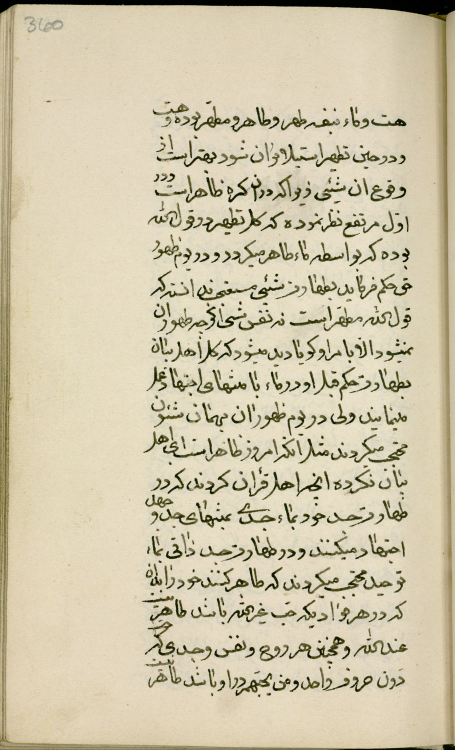 360
هست و ماء بنفسه طهر و طاهر و مطهر بوده و هست
و در حین تطهیر استیلاء بر ان شود بهتر است از
وقوع ان شیئی در او اگر در ان کره ظاهر است و در
اول مرتفع نظر نموده که کل تطهیر در قول الله
بوده که بواسطه ماء طاهر میکردد و در یوم ظهور
حق حکم فرماید بطهارت شیئی مستغنی نه انست که
قول الله مطهر است نه نفس شیئی اگرچه ظهور ان
نمیشود الا بامر او که یا دیده میشود که کل از اهل بیان
بطهارت حکم قبل او در ماء با منتهای اجتهاد عمل
مینمایند ولی در یوم ظهور ان بهمان شئون
محتجب میکردند مثل انکه امروز ظاهر است ای اهل
بیان نکرده انچه اهل قران کردند که در
طهارت جسد خود بماء جسدی بمنتهای جد و جهد
اجتهاد میکنند و در طهارت جسد ذاتی بماء
توحید محتجب میکردند که طاهر کنند خود را بانکه
که در هر فؤادیکه حب غیر الله باشد طاهر نیست
عند الله و همچنین هر روح و نفس و جسدی که حب
دون حروف واحد و من یحبهم در او باشد طاهر نیست